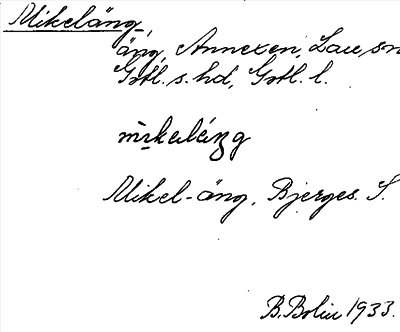 Mikeläng,
äng, Annexen, Lau, sn
Gotl. s. hd, Gotl. l.
Mikel-äng, Bjerges. S.
B. Bolin 1933.